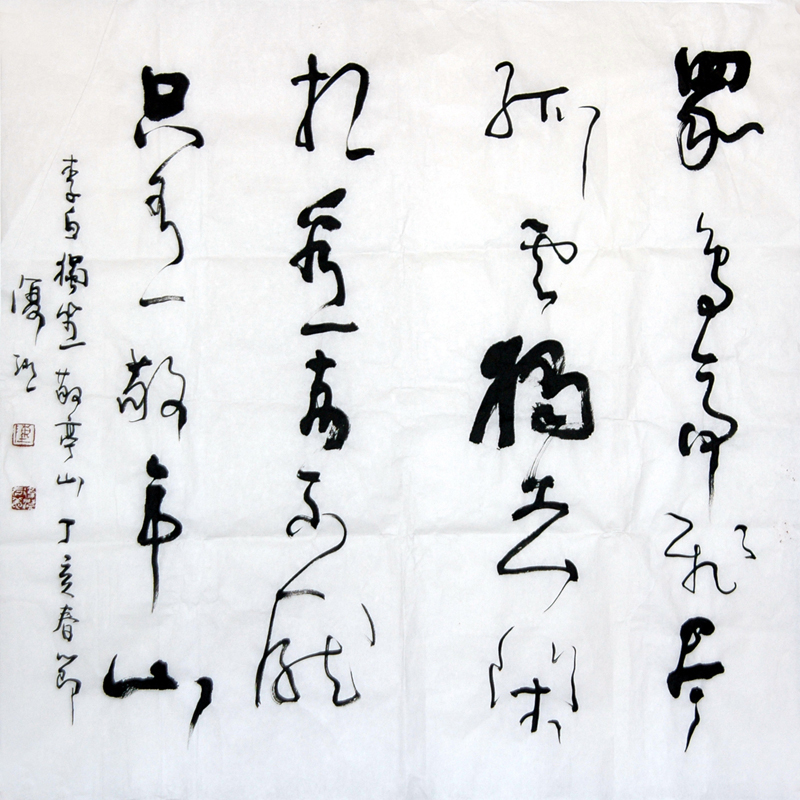 眾鳥高飛盡
孤雲獨去閑
相看兩不厭
只有敬亭山
李白獨坐敬亭山 丁亥春節